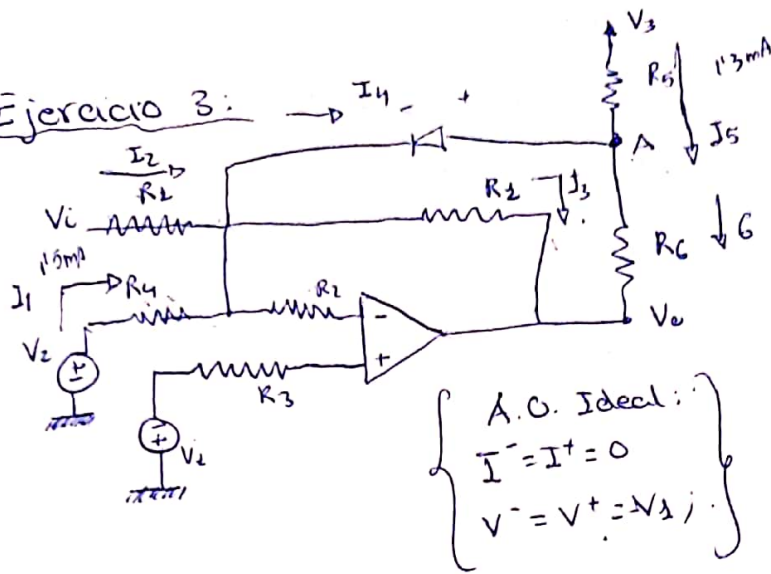 Ejercicio 3:
I4
- +
V3
R5
1'3mA
I5
A
I2
R1
Vi
R1
I3
R6
6
1'5mA
I1
R4
R2
-
Vo
V2
+
R3
V1
A.O. Ideal:
I⁻=I⁺=0
V⁻=V⁺=-V1;